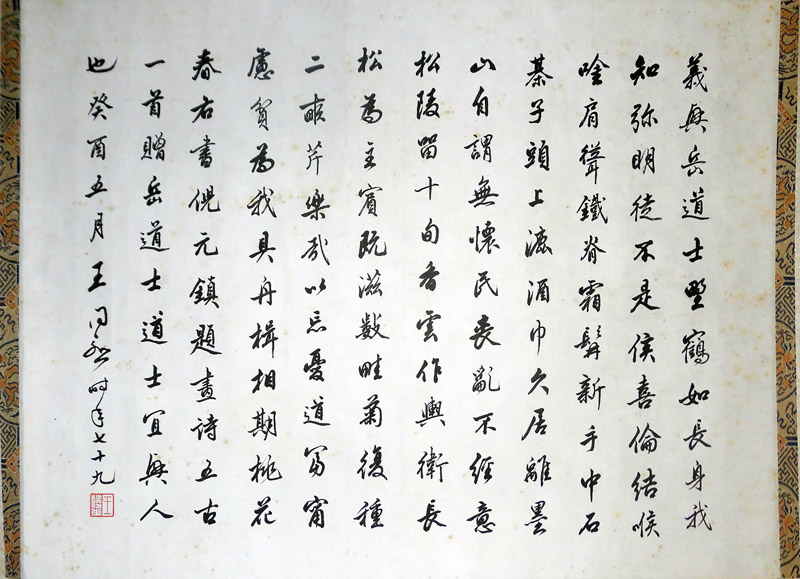 義興岳道士野鶴如長身我
知弥明徒不是侯喜倫結喉
唫肩聳鐵脊霜髯新手中石
棊子頭上漉酒巾久居離墨
山自謂無懷民喪亂不經意
松陵留十旬香雲作輿衛長
松為主賓既滋數畦菊復種
二畝芹樂哉以忘憂道富甯
慮貧為我具舟楫相期桃花
春右書倪元鎮題畫詩五古
一首贈岳道士道士宜興人
也癸酉五月王同愈時年七十九